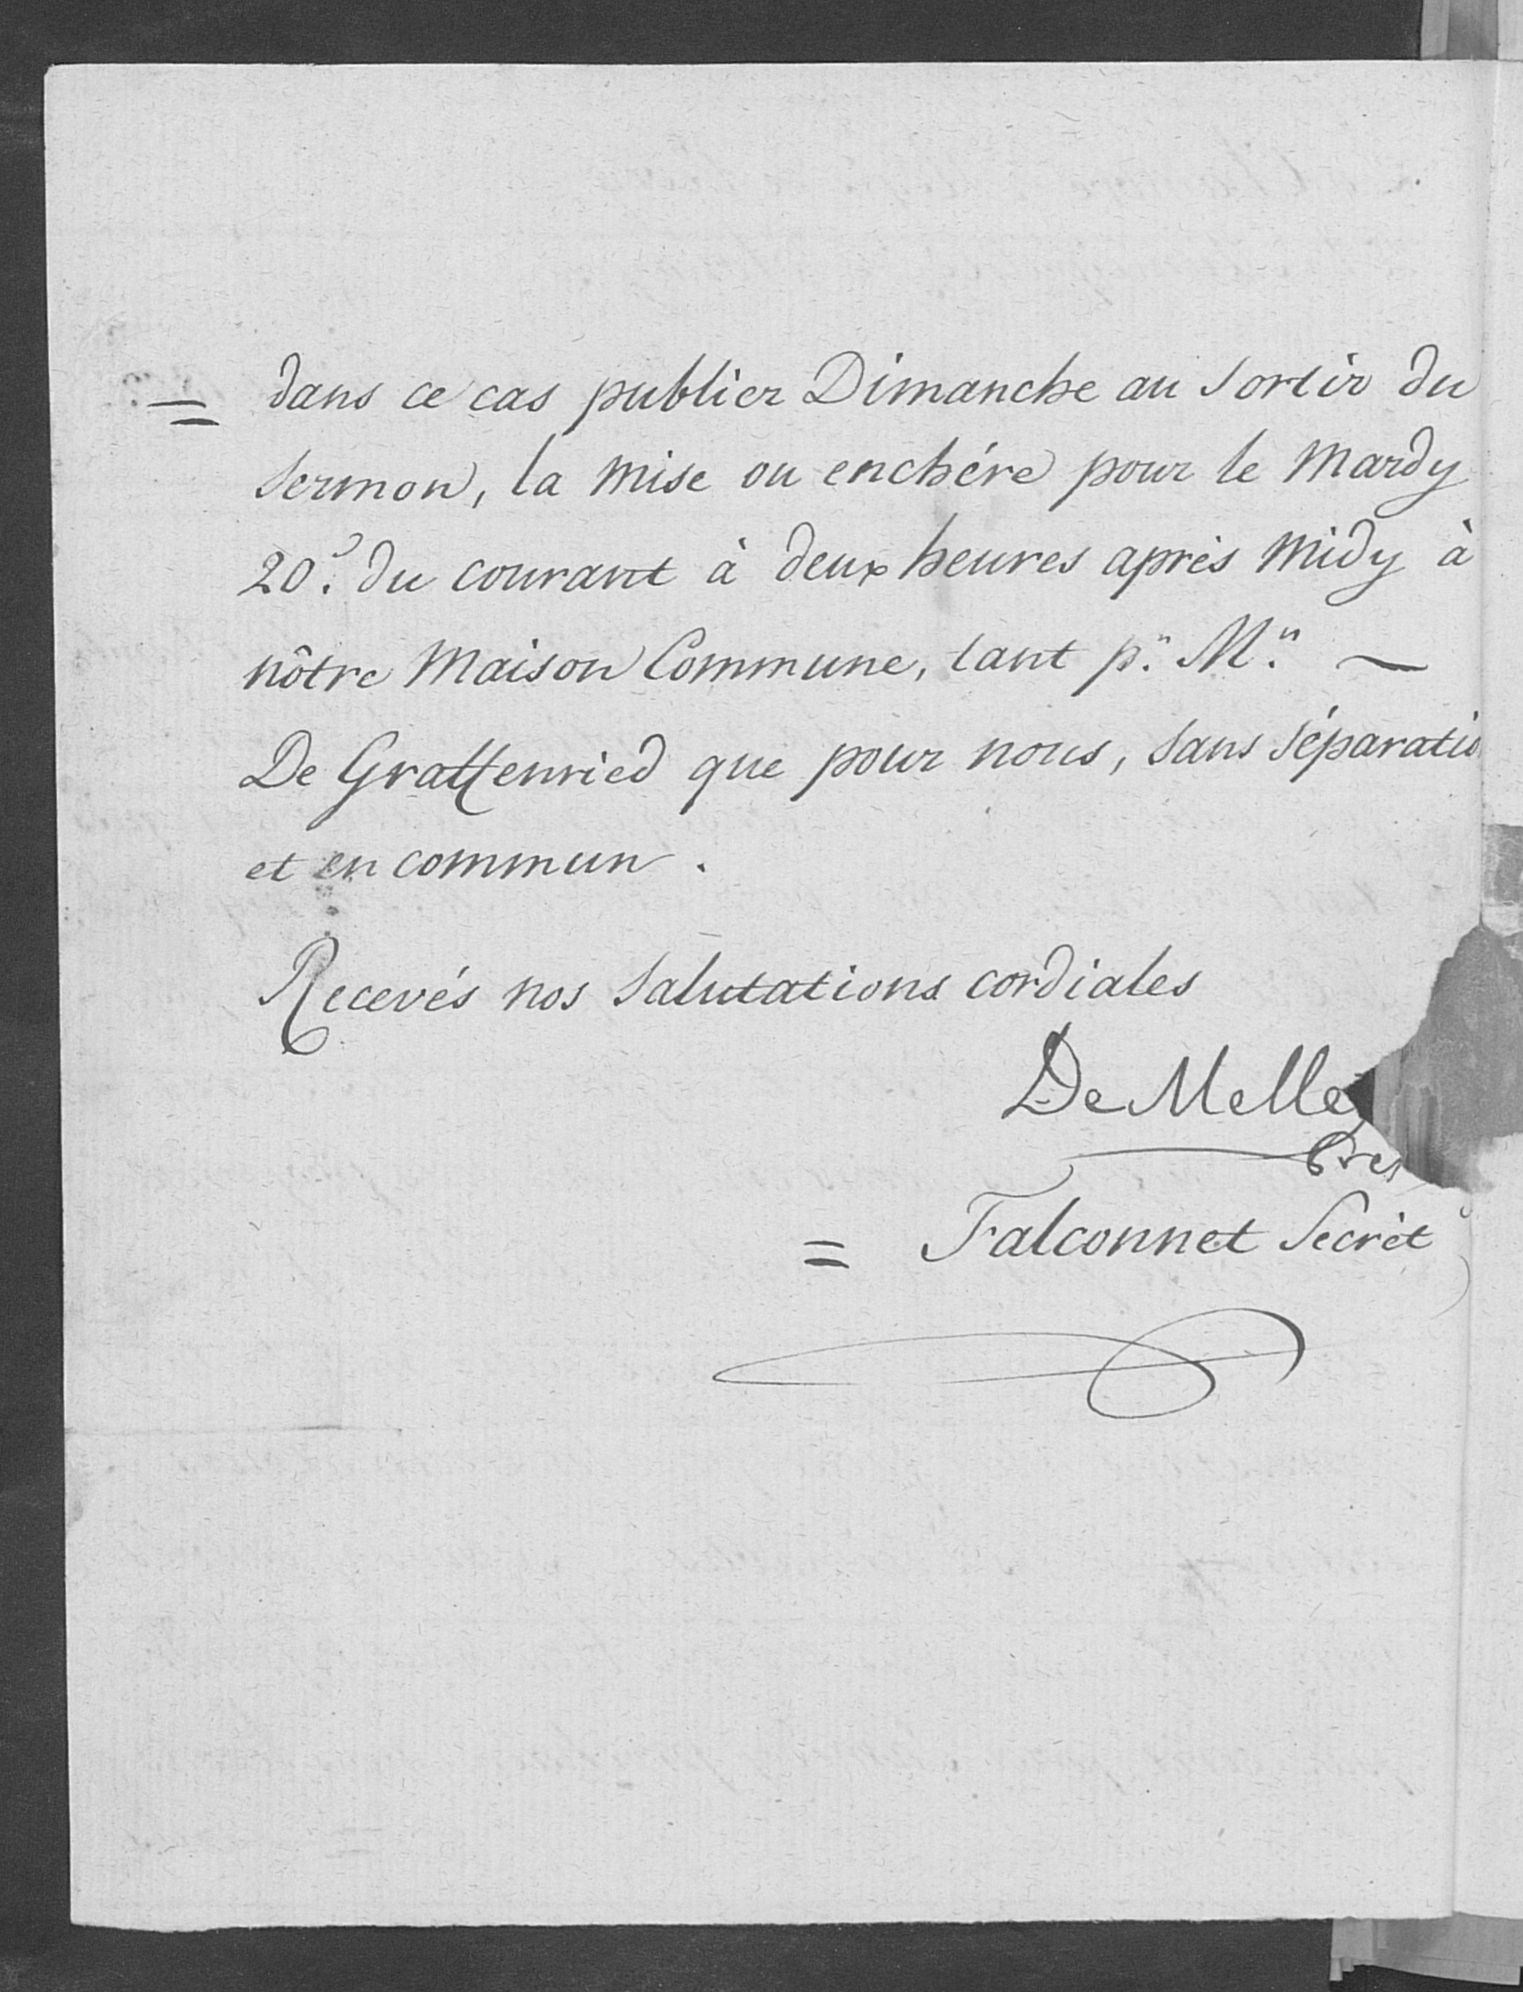 = dans ce cas publier Dimanche au Sortir du
Sermon, la Mise ou enchére pour le Mardy
20e. du courant à deux heures après Midy à
nôtre Maison Commune, tant pr. Mr. —
De Graffenried que pour nous, sans séparatio
et en commun.
Recevés nos Salutations cordiales
De Melle
Pres
= Falconnet Secrèt